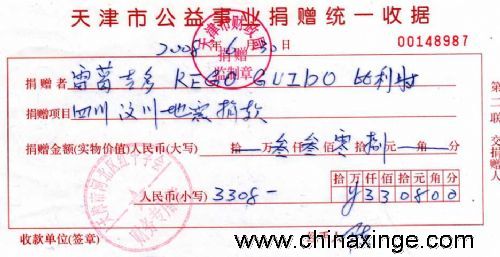 天津市公益事业捐赠统一收据
2008年6月30日
00148987
捐赠者 雷葛吉多 REGO GUIDO 比利时
捐赠项目 四川汶川地震捐款
捐赠金额(实物价值)人民币(大写) 拾 万叁仟叁佰零拾捌元 角 分
拾万仟佰拾元角分
人民币(小写) 3308- ¥330800
收款单位(签章)
第二联 交捐赠人
天津市财政局
捐赠
监制章
财务专用章
www.chinaxinge.com